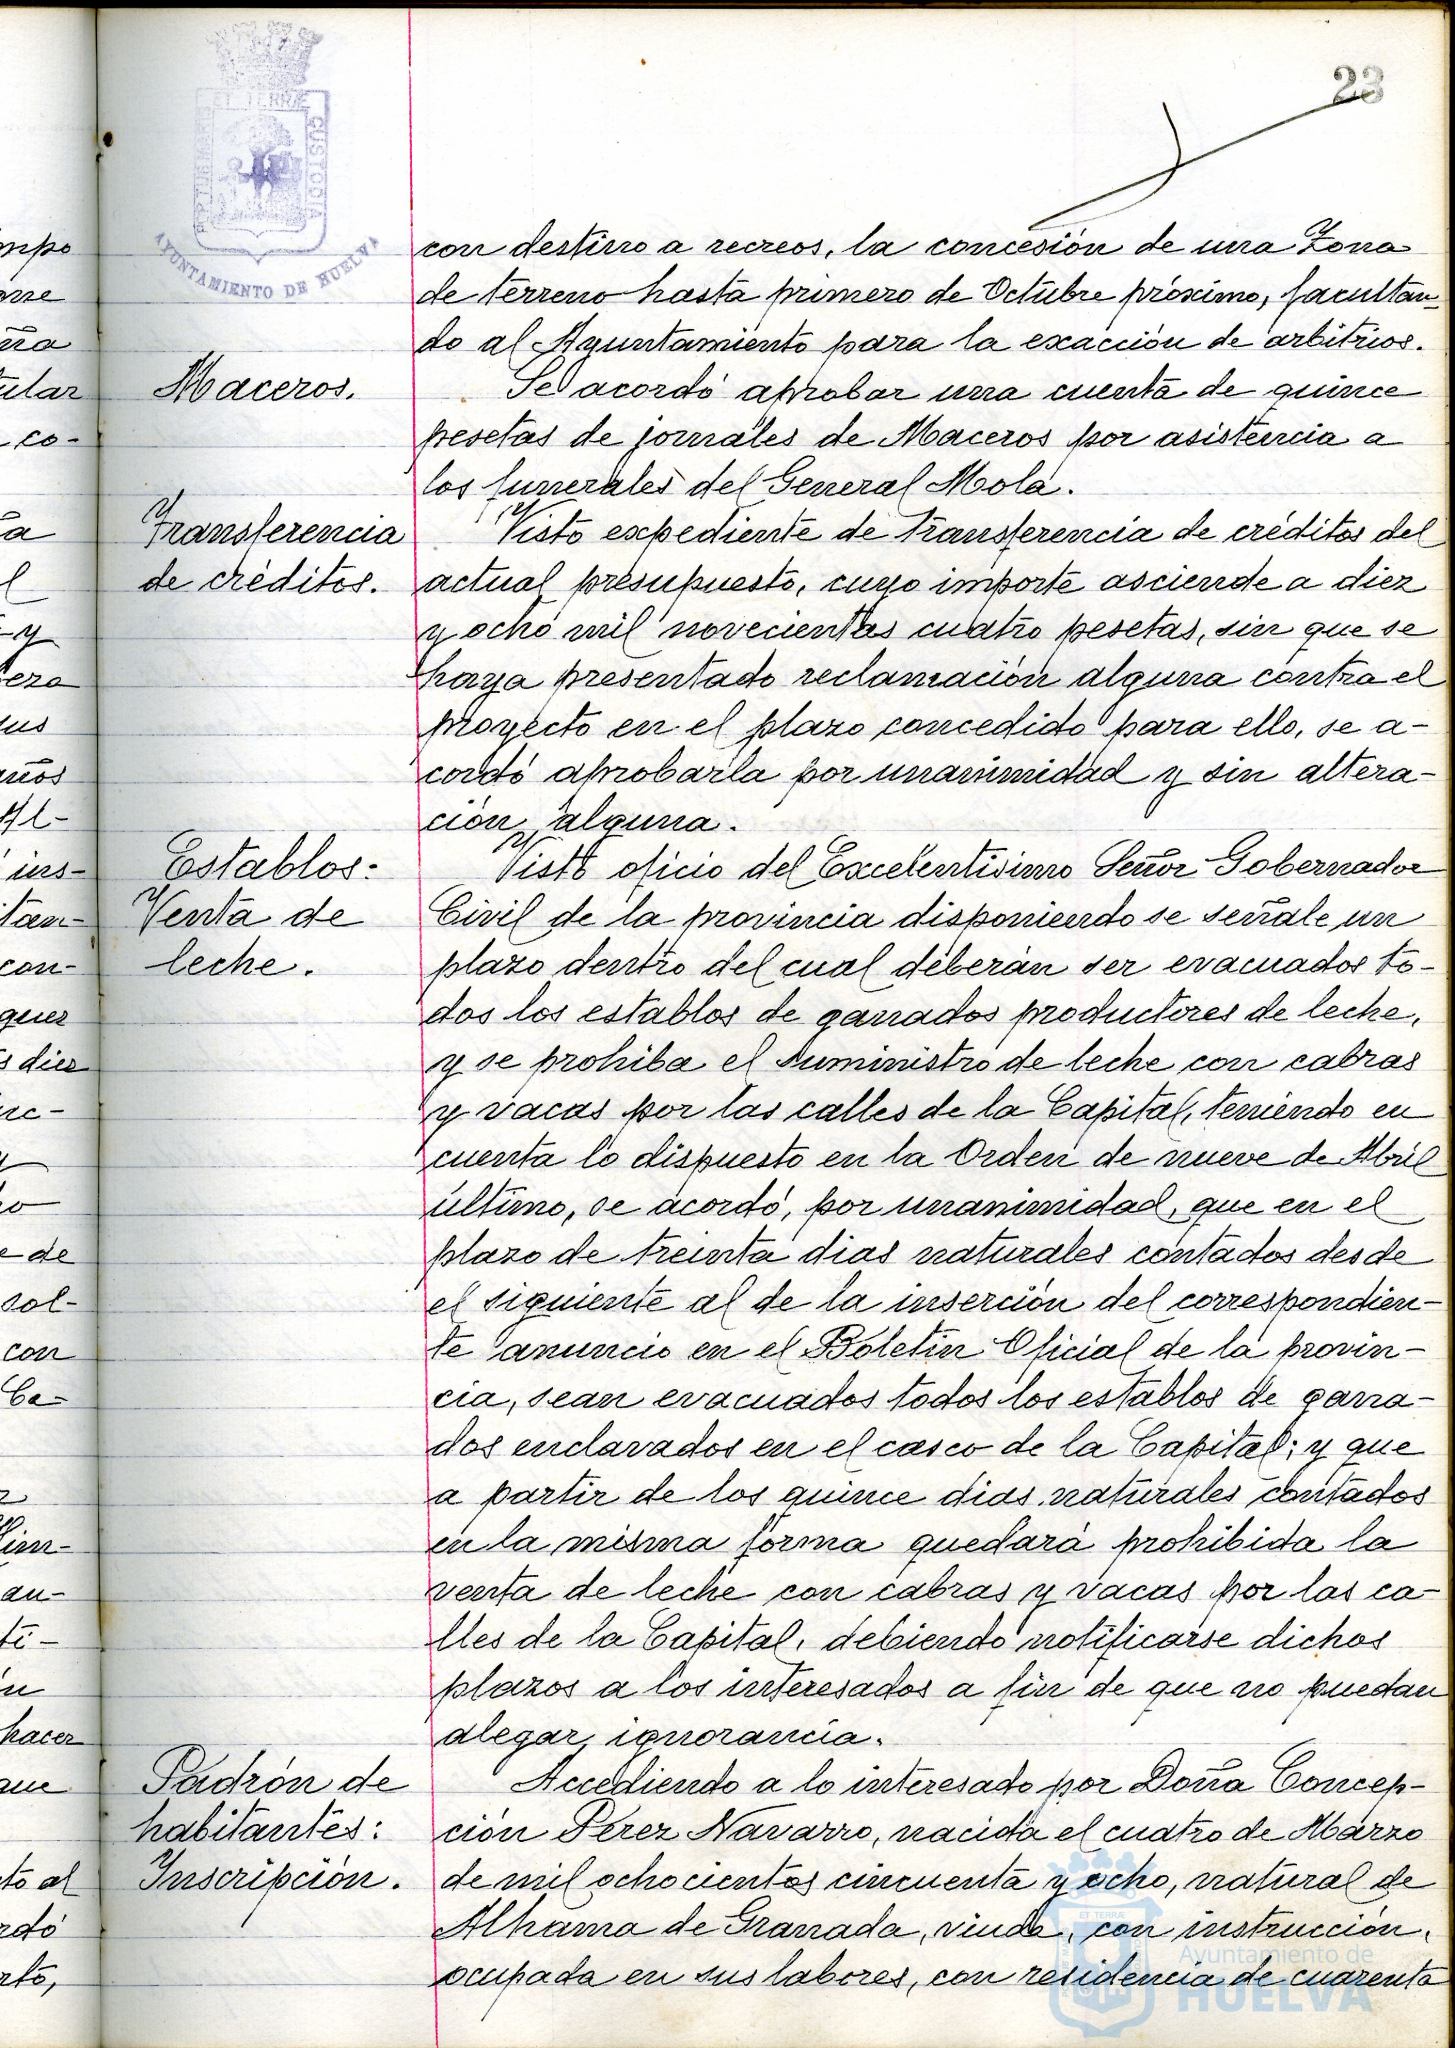 23
PORTUS MARIS ET TERRÆ CUSTODIA
AYUNTAMIENTO DE HUELVA
con destino a recreos, la concesión de una Zona
de terreno hasta primero de Octubre próximo, facultan-
do al Ayuntamiento para la exacción de arbitrios.
Maceros.
Se acordó aprobar una cuenta de quince
pesetas de jornales de Maceros por asistencia a
los funerales del General Mola.
Transferencia
de créditos.
Visto expediente de transferencia de créditos del
actual presupuesto, cuyo importe asciende a diez
y ocho mil novecientas cuatro pesetas, sin que se
haya presentado reclamación alguna contra el
proyecto en el plazo concedido para ello, se a-
cordó aprobarla por unanimidad y sin altera-
ción alguna.
Establos:
Venta de
leche.
Visto oficio del Excelentísimo Señor Gobernador
Civil de la provincia disponiendo se señale un
plazo dentro del cual deberán ser evacuados to-
dos los establos de ganados productores de leche,
y se prohiba el suministro de leche con cabras
y vacas por las calles de la Capital, teniendo en
cuenta lo dispuesto en la Orden de nueve de Abril
último, se acordó, por unanimidad, que en el
plazo de treinta dias naturales contados desde
el siguiente al de la inserción del correspondien-
te anuncio en el Boletín Oficial de la provin-
cia, sean evacuados todos los establos de gana-
dos enclavados en el casco de la Capital; y que
a partir de los quince dias naturales contados
en la misma forma quedará prohibida la
venta de leche con cabras y vacas por las ca-
lles de la Capital, debiendo notificarse dichos
plazos a los interesados a fin de que no puedan
alegar ignorancia.
Padrón de
habitantes:
Inscripción.
Accediendo a lo interesado por Doña Concep-
ción Pérez Navarro, nacida el cuatro de Marzo
de mil ochocientos cincuenta y ocho, natural de
Alhama de Granada, viuda, con instrucción,
ocupada en sus labores, con residencia de cuarenta
Ayuntamiento de
HUELVA